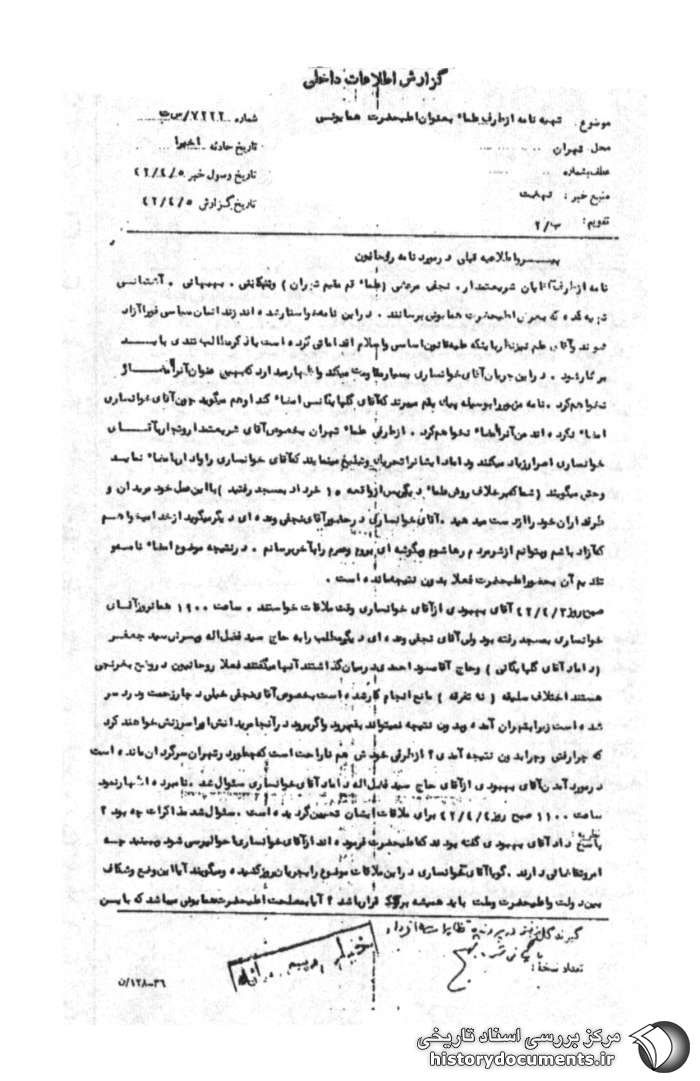 گزارش اطلاعات داخلی
موضوع: تهیه نامه ازطرف علماء بعنوان اعلیحضرت همایونی
شماره ۷۲۲۲/س ت
محل: تهران
تاریخ حادثه اخیرا
عطف بشماره
تاریخ وصول خبر ۴۲/۴/۵
منبع خبر:
تاریخ گزارش ۴۲/۴/۵
تقویم: ب/۲
پیرو اطلاعیه قبلی درمورد نامه روحانیون
نامه ازطرف آقایان شریعتمدار. نجفی مرعشی (علماء قم مقیم تهران) و بهبهانی. آشتیانی
تهیه شده که بعرض اعلیحضرت همایونی برسانند. دراین نامه درخواست شده اند زندانیان سیاسی فورا آزاد
شوند وآقای علم نیز ازاینکه علیه قانون اساسی واسلام اقداماتی کرده است با ذکر مطالب تندی بایـــد
برکنارشود. دراین جریان آقای خوانساری بسیار مقاومت میکند واظهار میدارد که بهیچ عنوان آنرا امضاء
نخواهم کرد. نامه مزبور را بوسیله پیک بقم میبرند که آقای گلپایگانی امضاء کند او هم میگوید چون آقای خوانساری
امضاء نکرده اند من آنرا امضاء نخواهم کرد. ازطرفی علماء تهران بخصوص آقای شریعتمدار وتجار با آقـــای
خوانساری اصرار زیاد میکنند و داماد ایشانرا تحریک وتبلیغ مینمایند که آقای خوانساری را وادار بامضاء نمایـد
وحتی میگویند (شما که برخلاف روش علماء دیگر پس ازواقعه ۱۵ خرداد بمسجد رفتید) با این عمل خود مریدان و
طرفداران خود را ازدست میدهید. آقای خوانساری درحضور آقای نجفی وعده ای دیگر میگوید ازخدا میخواهـــم
که آزاد باشم وبتوانم ازشر مردم رها شوم وبگوشه ای بروم وعمرم را بآخر برسانم. درنتیجه موضوع امضاء نامه و
تقدیم آن بحضور اعلیحضرت فعلا بدون نتیجه مانده است.
صبح روز ۴۲/۴/۳ آقای بهبودی ازآقای خوانساری وقت ملاقات خواستند. ساعت ۱۹۰۰ همانروز آقـای
خوانساری بمسجد رفته بود ولی آقای نجفی وعده ای دیگر مطلب را به حاج سید فضل اله وپسرش سید جعفـر
(داماد آقای گلپایگانی) وحاج آقا احمدی درمیان گذاشتند آنها میگفتند فعلا روحانیون دروضع بغرنجی
هستند اختلاف سلیقه (نه تفرقه) مانع انجام کار شده است بخصوص آقای نجفی خیلی دچار زحمت و دردسر
شده است زیرا بتهران آمده وبدون نتیجه نمیتواند بقم برود واگر برود درآنجا مریدانش اورا سرزنش خواهند کرد
که چرا رفتی وچرا بدون نتیجه آمدی؟ ازطرفی خودش هم ناراحت است که چطور درتهران سرگردان مانده است
درمورد آمدن آقای بهبودی ازآقای حاج سید فضل اله داماد آقای خوانساری سئوال شد. نامبرده اظهار نمود
ساعت ۱۱۰۰ صبح روز ۴۲/۴/۴ برای ملاقات ایشان تعیین گردیده است. سئوال شد مذاکرات چه بود؟
نظریه:
پاسخ داد آقای بهبودی گفته بودند که اعلیحضرت فرموده اند ازآقای خوانساری احوالپرسی شود وببینید چــه
امر وتقاضائی دارند. گویا آقای خوانساری دراین ملاقات موضوع را بجریان روز کشیده ومیگویند آیا این وضع وشکاف
بین دولت واعلیحضرت وملت باید همیشه برقرار باشد؟ آیا بمصلحت اعلیحضرت همایونی میباشد که با یـــن
گیرندگان:
تعداد نسخه:
۳۶-۱۲۸/ن
مرکز بررسی اسناد تاریخی
historydocuments.ir